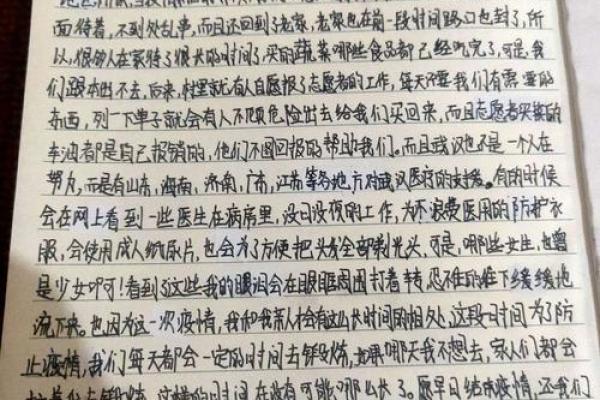 面待着，不到处乱串，而且还回到了老家，老家也在前一段时间路口也封了，所
以，很多人在家待了很长时间了，买的蔬菜哪些食品都已经吃完了，可是，我
们跟本出不去，后来，村里就有人自愿报了志愿者的工作，每天只要我们有需要的
东西，列一下单子就会有人不顾危险出去给我们买回来，而且志愿者买东西的
车油都是自己报销的，他们不图回报的帮助我们。而且武汉也不是一个人在
努力，而是有山东，海南，济南，广东，江苏等各地方对武汉医疗的支援。有的时候
会在网上看到一些医生在病房里，没日没夜的工作，为不浪费医用的防护衣
服，会使用成人纸尿片，也会为了方便把头发全部剃光头，可是，哪些女生，也曾
是少女吖可！看到了这些我的眼泪会在眼眶周围打着转，忍不住的往下缓缓地
流下来。也因为这一次疫情，我和我亲人会有这么长时间的相处，这段时间为了防
止疫情，我们每天都会一定的时间去锻炼，哪天我不想去，家人们都会
去锻炼，这样的时间在没有可能那么长了。愿早日结束疫情，还我们